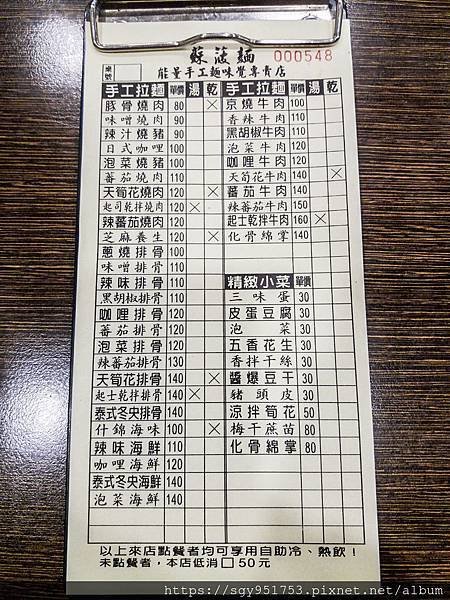 蘇菠麵 000548
能量手工麵味覺專賣店
桌號
手工拉麵 單價 湯 乾
豚骨燒肉 80 ×
味噌燒肉 90
辣汁燒豬 90
日式咖哩 100
泡菜燒豬 100
蕃茄燒肉 110
天荀花燒肉 120 ×
起司乾拌燒肉 120 ×
辣蕃茄燒肉 120
芝麻養生 120 ×
蔥燒排骨 100
味噌排骨 110
辣味排骨 110
黑胡椒排骨 110
咖哩排骨 120
蕃茄排骨 120
泡菜排骨 120
辣蕃茄排骨 130
天荀花排骨 140 ×
起士乾拌排骨 140 ×
泰式冬央排骨 140
什錦海味 100 ×
辣味海鮮 110
咖哩海鮮 120
泰式冬央海鮮 140
泡菜海鮮 140
手工拉麵 單價 湯 乾
京燒牛肉 100
香辣牛肉 110
黑胡椒牛肉 110
泡菜牛肉 120
咖哩牛肉 120
天荀花牛肉 140 ×
蕃茄牛肉 140
辣蕃茄牛肉 150
起士乾拌牛肉 160 ×
化骨綿掌 140
精緻小菜 單價
三味蛋 30
皮蛋豆腐 30
泡菜 30
五香花生 30
香拌干絲 30
醬爆豆干 30
豬頭皮 30
涼拌筍花 50
梅干蔗苗 80
化骨綿掌 80
以上來店點餐者均可享用自助冷、熱飲！
未點餐者，本店低消□50元
https://sgy951753.pixnet.net/album